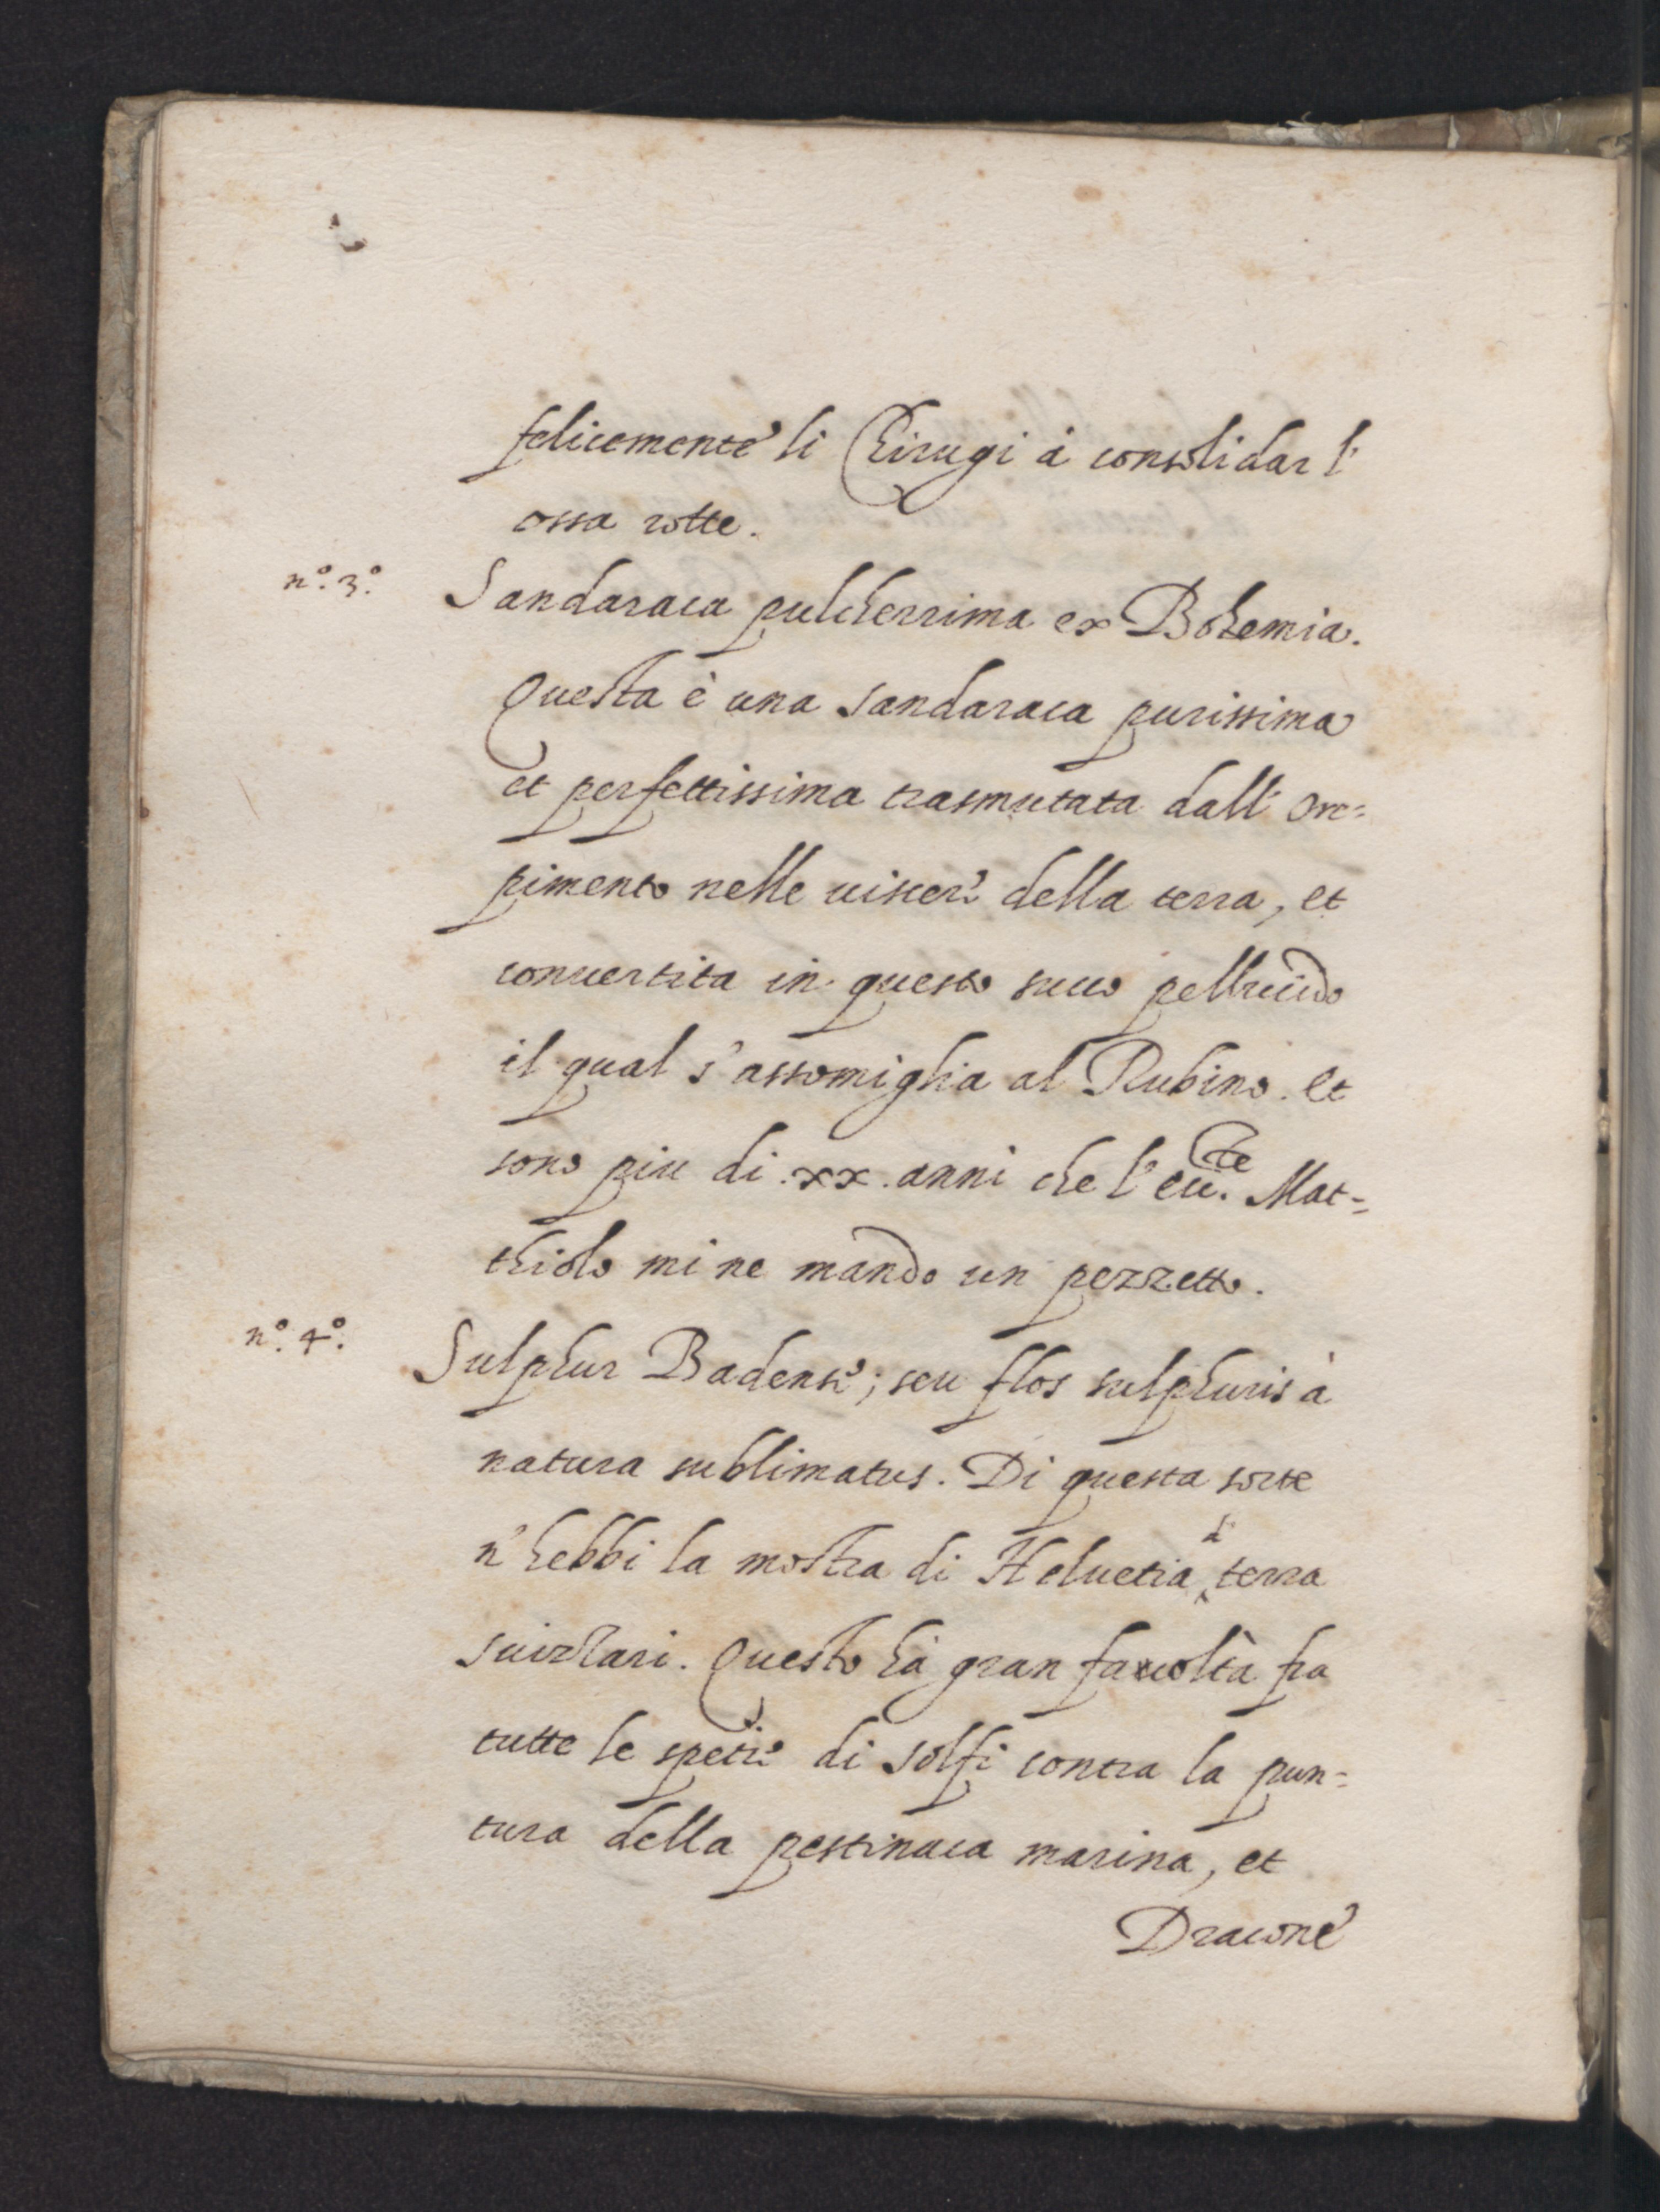 felicemente li Chirugi à consolidar l'
ossa rotte.
n.º 3.º Sandaraca pulcherrima ex Bohemia.
Questa è una sandaraca purissima
et perfettissima trasmutata dall' Ore=
pimento nelle uiscere della terra, et
conuertita in questo succo pellucido
il qual s'assomiglia al Rubino. et
sono piu di .xx. anni che l'ecc.te Mat=
thiolo mi ne mandò un pezzetto.
n.º 4.º Sulphur Badense; seu flos sulphuris à
natura sublimatus. Di questa sorte
n'hebbi la mostra di Heluetia d' terra
suizzari. Questo hà gran facoltà fra
tutte le spetie di solfi contra la pun=
tura della pastinaca marina, et
Dracone